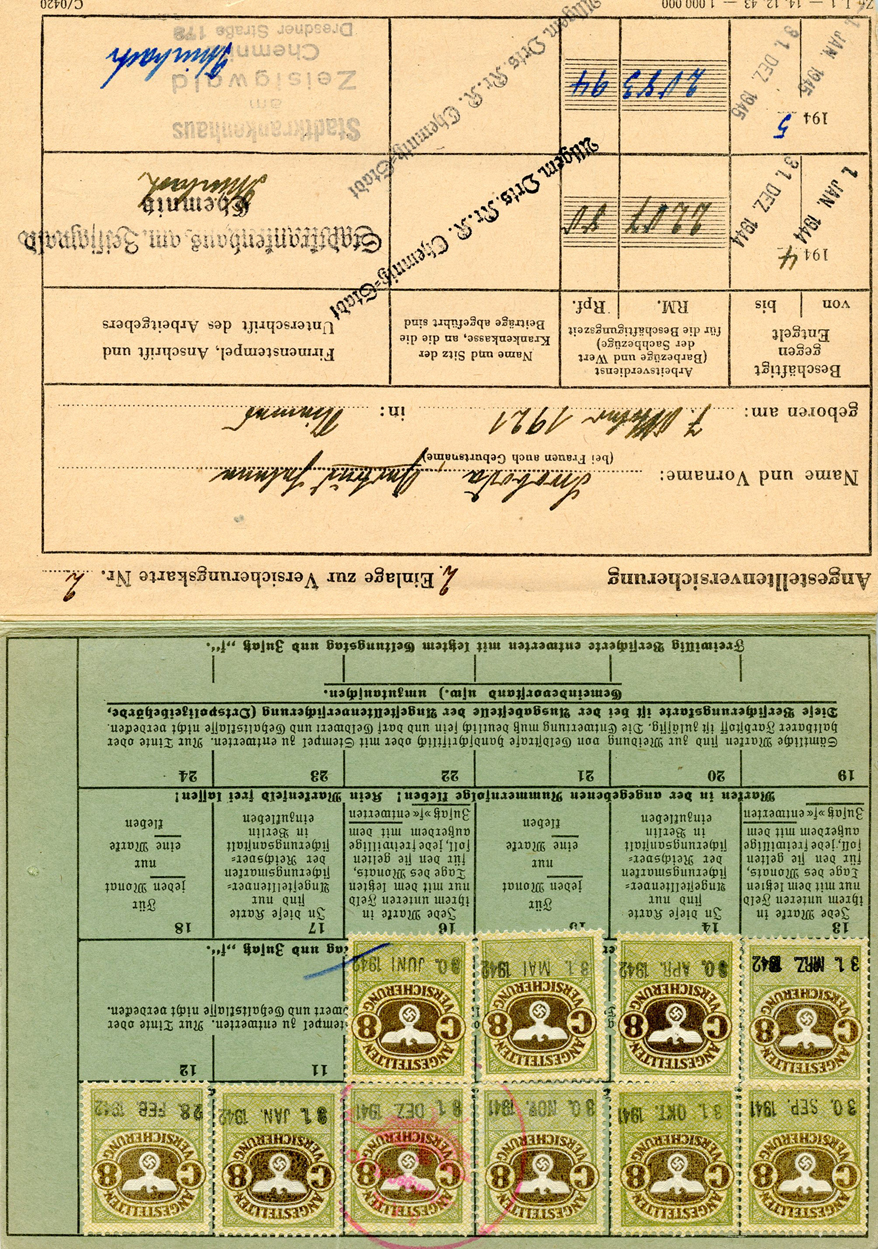 ANGESTELLTEN C 8 VERSICHERUNG 30. SEP. 1941
ANGESTELLTEN C 8 VERSICHERUNG 31. OKT. 1941
ANGESTELLTEN C 8 VERSICHERUNG 30. NOV. 1941
ANGESTELLTEN C 8 VERSICHERUNG 31. DEZ 1941
ANGESTELLTEN C 8 VERSICHERUNG 31. JAN. 1942
ANGESTELLTEN C 8 VERSICHERUNG 28. FEB 1942
11 12
ANGESTELLTEN C 8 VERSICHERUNG 31. MRZ. 1942
ANGESTELLTEN C 8 VERSICHERUNG 30. APR. 1942
ANGESTELLTEN C 8 VERSICHERUNG 31. MAI 1942
ANGESTELLTEN C 8 VERSICHERUNG 30. JUNI 1942
stempel zu entwerten. Nur Tinte oder
wert und Gehaltsklasse nicht verdecken.
tag und Zusatz „f“.
13 14 15 16 17 18
Jede Marke in
ihrem unteren Feld
nur mit dem letzten
Tage des Monats,
für den sie gelten
soll, jede freiwillige
außerdem mit dem
Zusatz »f« entwerten
In diese Karte
sind nur
Angestelltenver-
sicherungsmarken
der Reichsver-
sicherungsanstalt
in Berlin
einzukleben
Für
jeden Monat
nur
eine Marke
kleben
Jede Marke in
ihrem unteren Feld
nur mit dem letzten
Tage des Monats,
für den sie gelten
soll, jede freiwillige
außerdem mit dem
Zusatz »f« entwerten
In diese Karte
sind nur
Angestelltenver-
sicherungsmarken
der Reichsver-
sicherungsanstalt
in Berlin
einzukleben
Für
jeden Monat
nur
eine Marke
kleben
Marken in der angegebenen Nummernfolge kleben! Kein Markenfeld frei lassen!
19 20 21 22 23 24
Sämtliche Marken sind zur Meidung von Geldstrafe handschriftlich oder mit Stempel zu entwerten. Nur Tinte oder
haltbarer Farbstoff ist zulässig. Die Entwertung muß deutlich sein und darf Geldwert und Gehaltsklasse nicht verdecken.
Diese Versicherungskarte ist bei der Ausgabestelle der Angestelltenversicherung (Ortspolizeibehörde,
Gemeindevorstand usw.) umzutauschen.
Freiwillig Versicherte entwerten mit letztem Geltungstag und Zusatz „f“.
Angestelltenversicherung 2. Einlage zur Versicherungskarte Nr. 2
Name und Vorname:
(bei Frauen auch Geburtsname)
geboren am: 7. Oktober 1921 in:
Beschäftigt
gegen
Entgelt
von bis
Arbeitsverdienst
(Barbezüge und Wert
der Sachbezüge)
für die Beschäftigungszeit
RM. Rpf.
Name und Sitz der
Krankenkasse, an die die
Beiträge abgeführt sind
Firmenstempel, Anschrift und
Unterschrift des Arbeitgebers
1944
1. JAN. 1944 31. DEZ. 1944
2207 80
Allgem. Orts. Kr. K. Chemnitz-Stadt
Stadtkrankenhaus am Zeisigwald
Chemnitz
1945
1. JAN. 1945 31. DEZ. 1945
2083 94
Allgem. Orts. Kr. K. Chemnitz-Stadt
Stadtkrankenhaus
am
Zeisigwald
Chemnitz
Dresdner Straße 178
14. 12. 43 — 1 000 000 C/0420